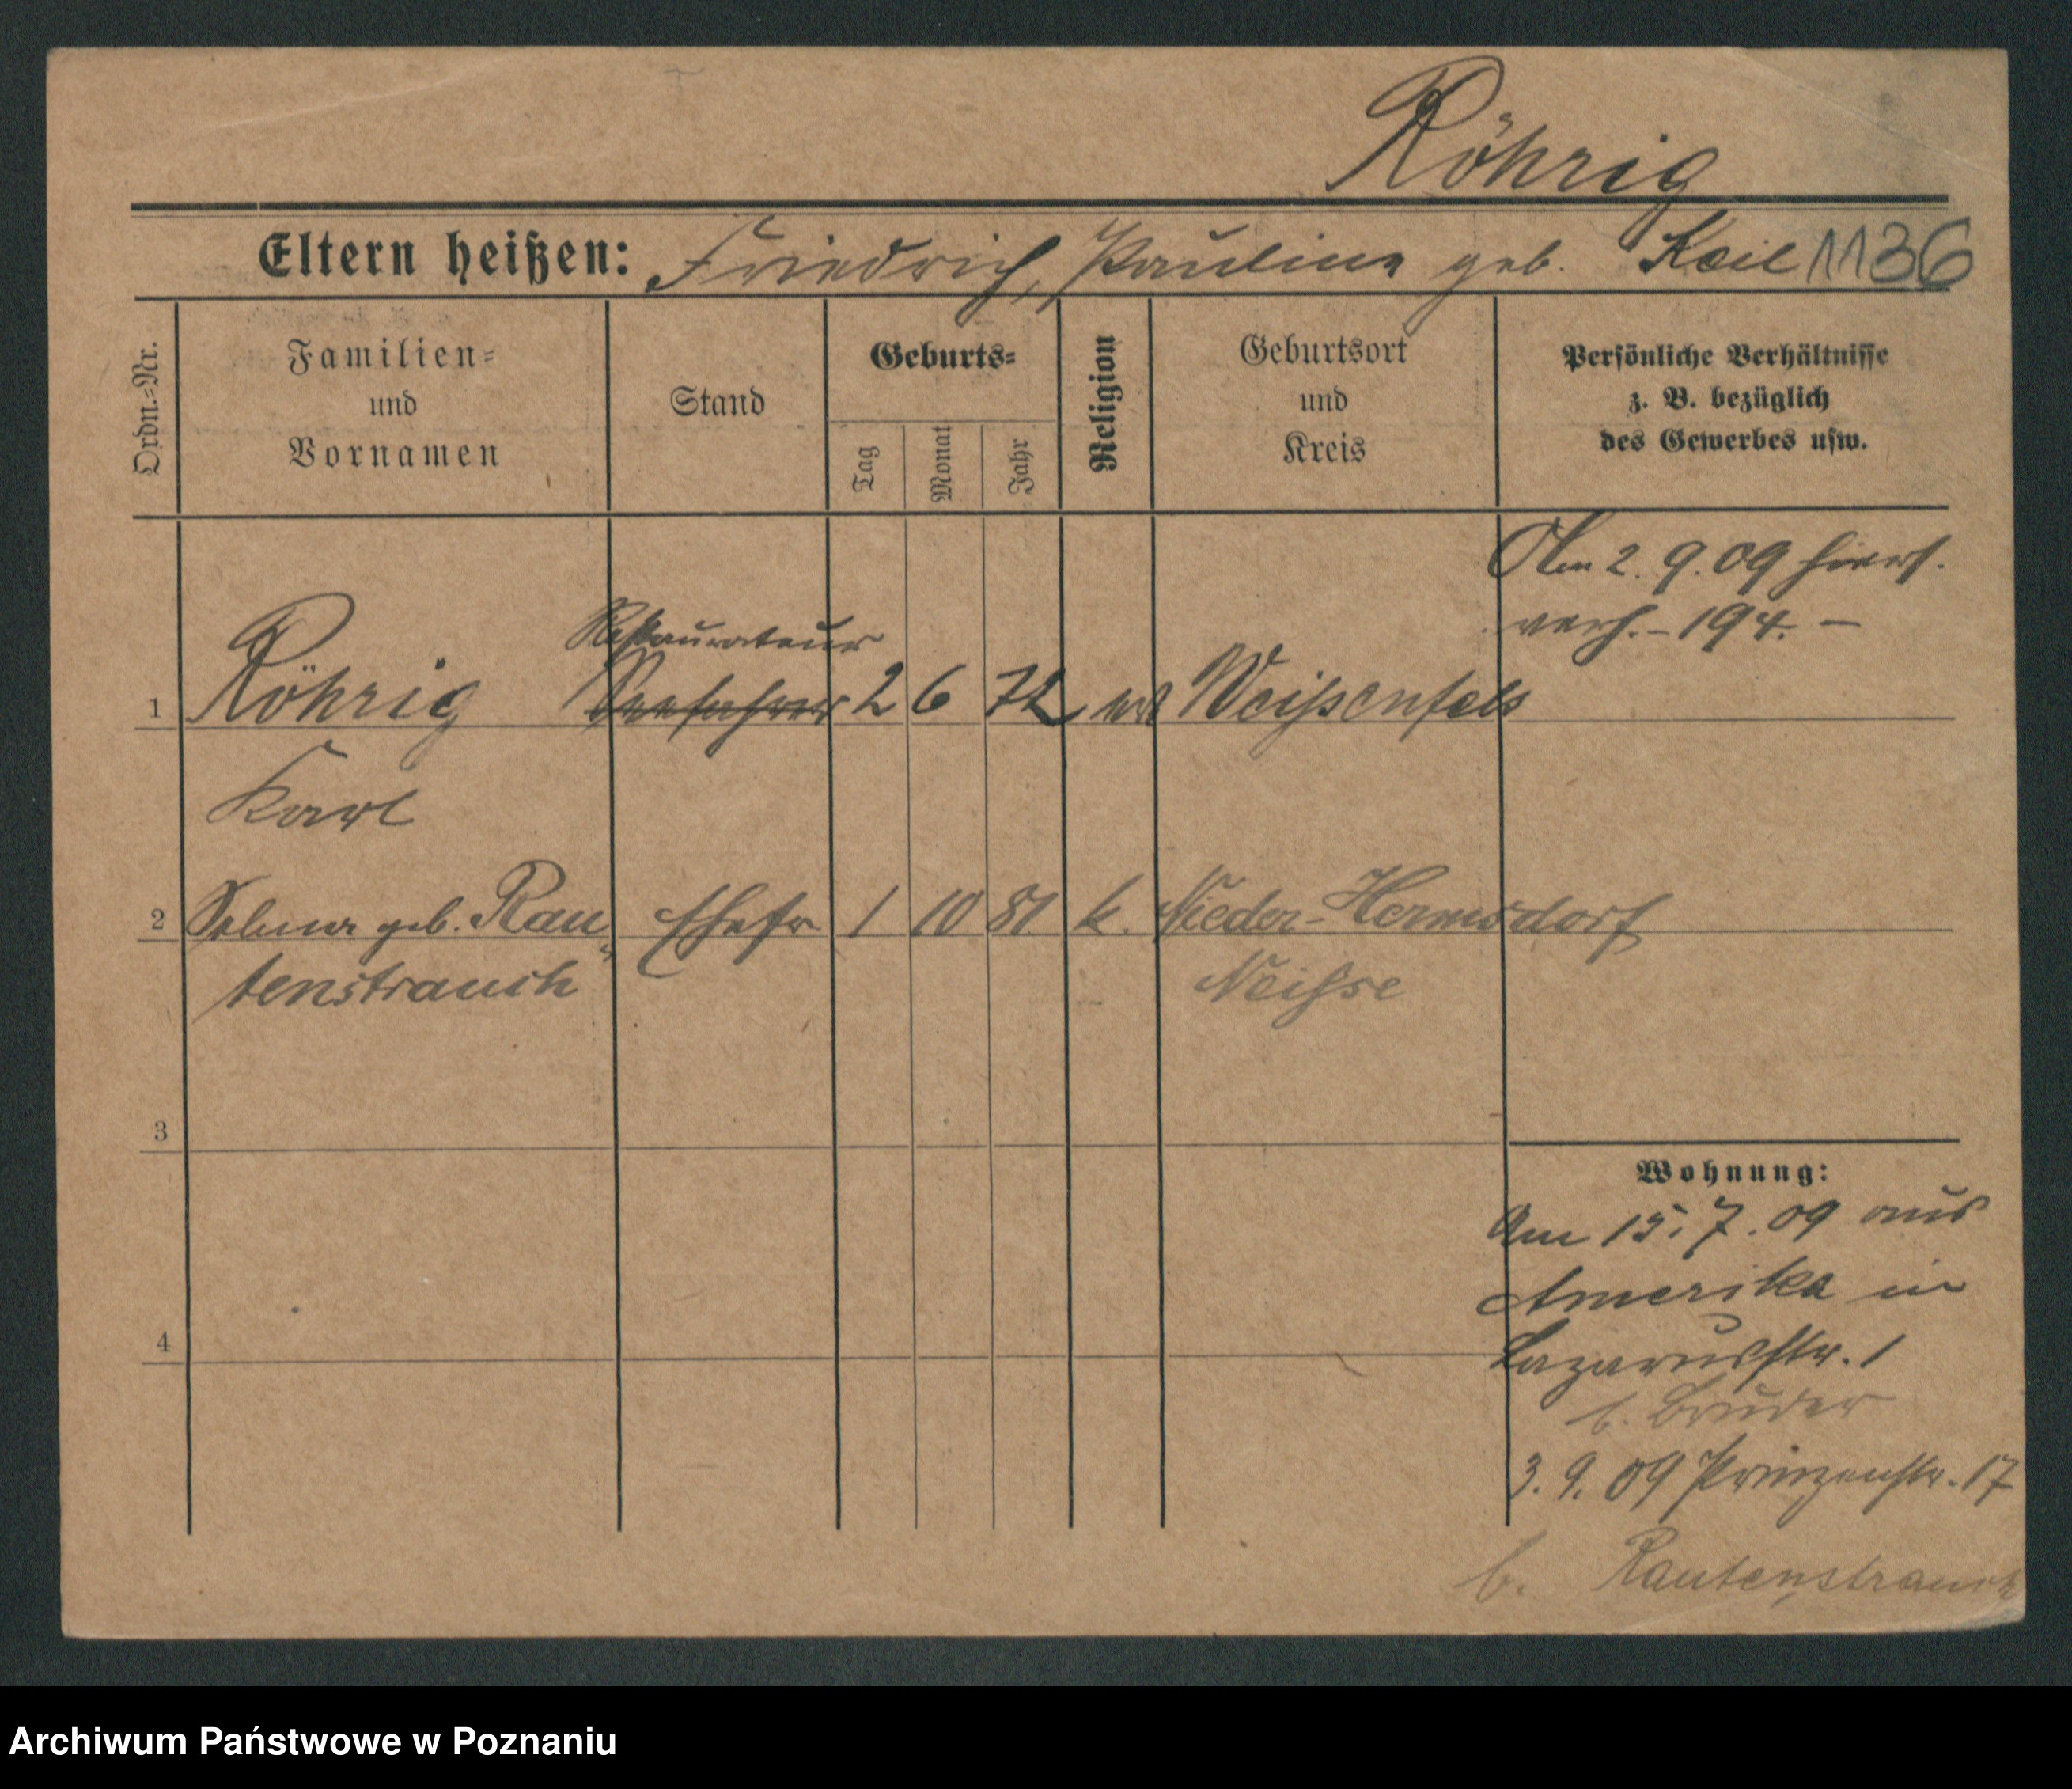 Röhrig
Eltern heißen: Friedrich, Pauline geb. Keil 1136
Ordn.-Nr.
Familien-
und
Vornamen
Stand
Geburts-
Tag
Monat
Jahr
Religion
Geburtsort
und
Kreis
Persönliche Verhältnisse
z. B. bezüglich
des Gewerbes usw.
Am 2. 9. 09 hiers.
verh. – 194. –
Restaurateur
1 Röhrig Seefahrer 2 6 72 Weißenfels
Karl
2 Selma geb. Rau-
tenstrauch
Ehefr. 1 10 81 k. Nieder-Hermsdorf
Neisse
3
4
Wohnung:
Am 15. 7. 09 aus
Amerika in
Lazarusstr. 1
b. Bruder
3. 9. 09 Prinzenstr. 17
b. Rautenstrauch
Archiwum Państwowe w Poznaniu